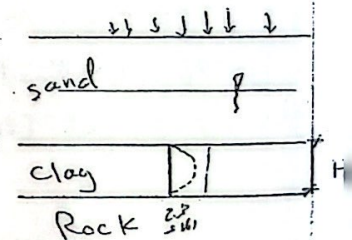 sand
clay
H
Rock